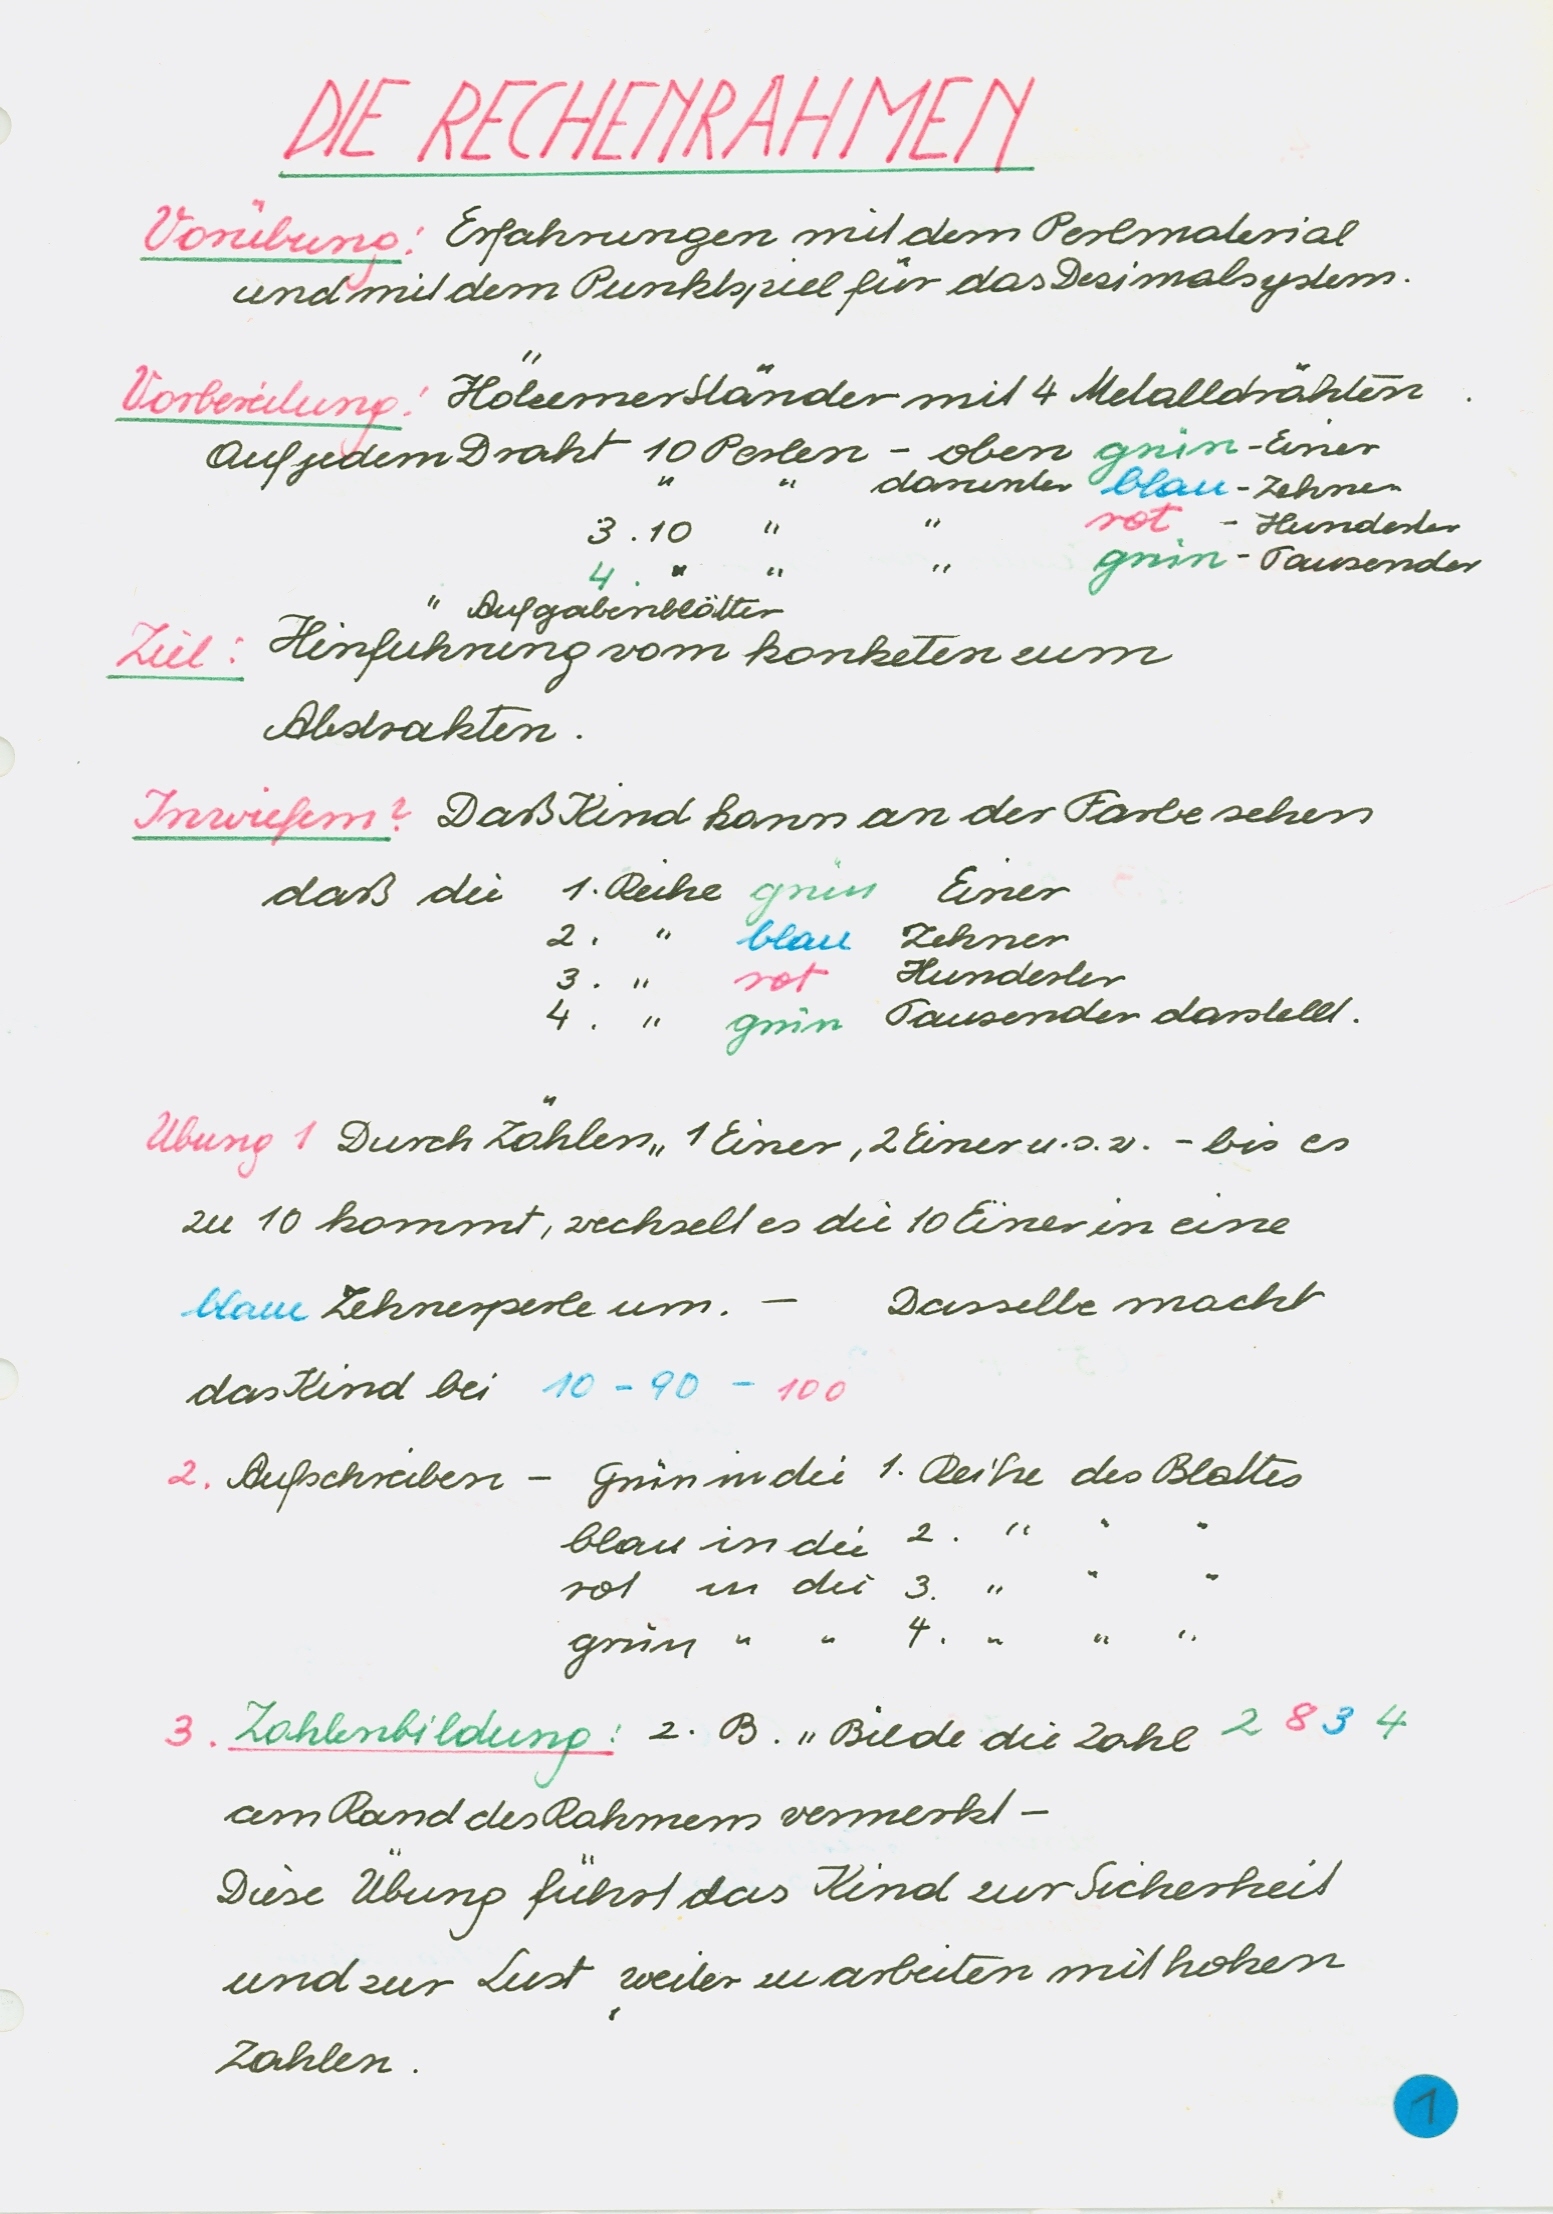 DIE RECHENRAHMEN
Vorübung: Erfahrungen mit dem Perlmaterial
und mit dem Punktspiel für das Dezimalsystem.
Vorbereitung: Hölzerner Ständer mit 4 Metalldrähten.
Auf jedem Draht 10 Perlen - oben grün - Einer
" " darunter blau - Zehner
3. 10 " " rot - Hunderter
4. " " " grün - Tausender
" Aufgabenblätter
Ziel: Hinfuhrung vom konketen zum
Abstrakten.
Inwiefern? Daß Kind kann an der Farbe sehen
daß die 1. Reihe grün Einer
2. " blau Zehner
3. " rot Hunderter
4. " grün Tausender darstellt.
Übung 1 Durch Zählen „ 1 Einer, 2 Einer u.s.w. - bis es
zu 10 kommt, wechselt es die 10 Einer in eine
blaue Zehnerperle um. - Dasselbe macht
das Kind bei 10 - 90 - 100
2. Aufschreiben - Grün in die 1. Reihe des Blattes
blau in die 2. " " "
rot in die 3. " " "
grün " " 4. " " "
3. Zahlenbildung: z. B. „ Bilde die Zahl 2 8 3 4
am Rand des Rahmens vermerkt -
Diese Übung führt das Kind zur Sicherheit
und zur Lust, weiter zu arbeiten mit hohen
Zahlen.
1